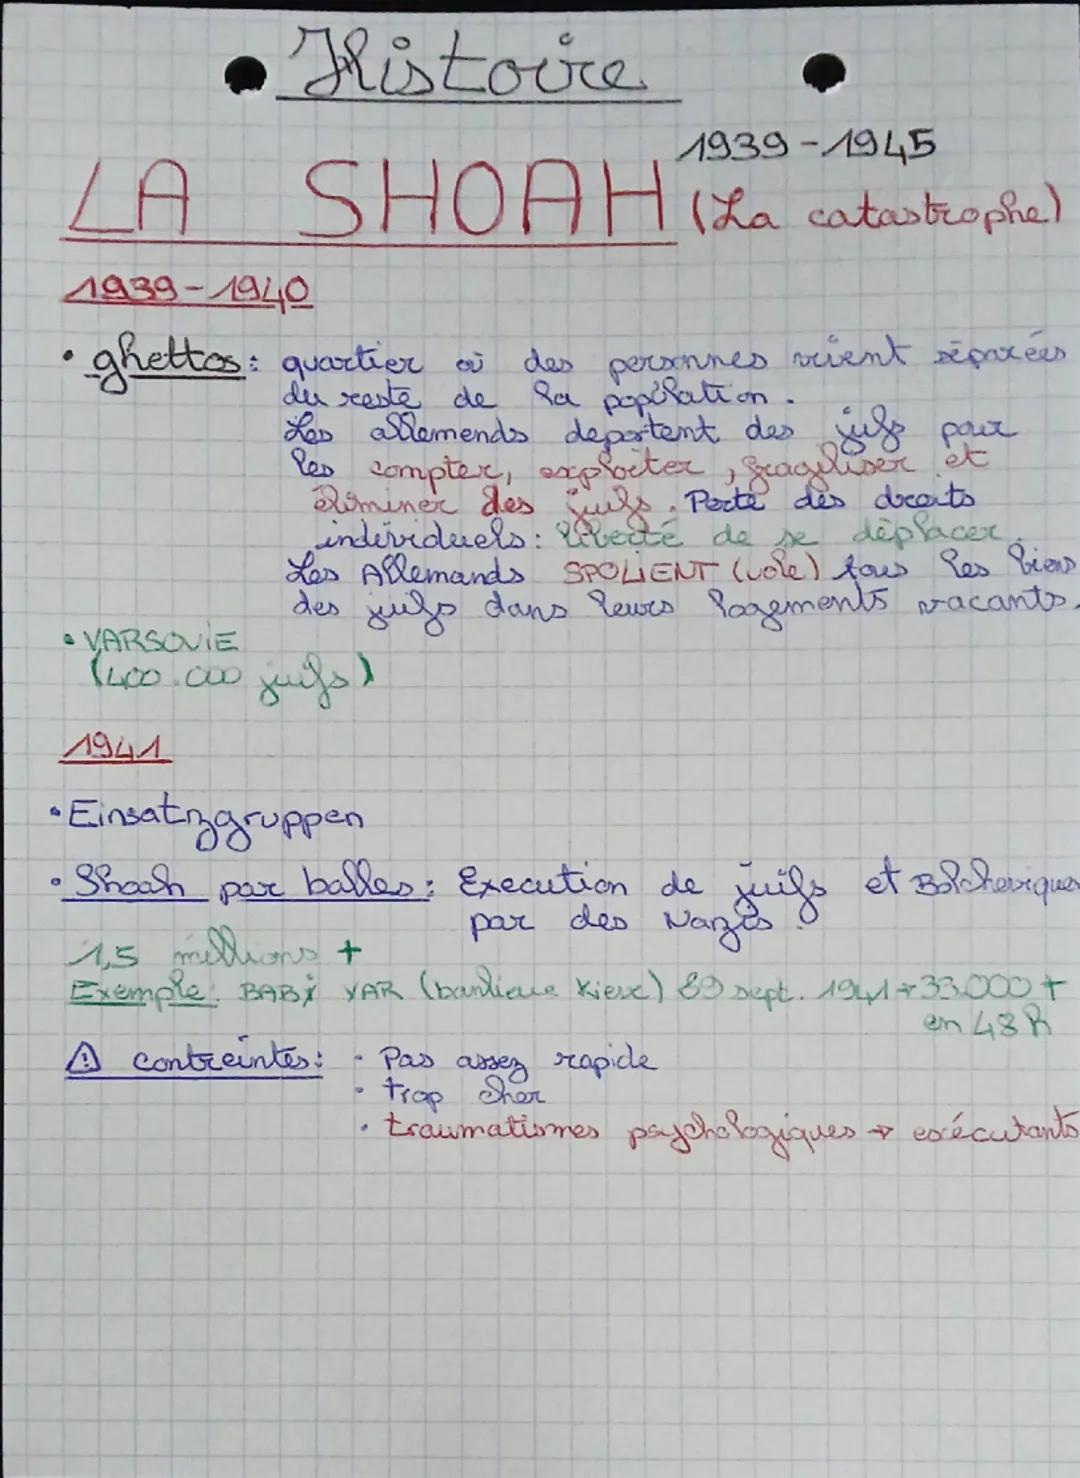 Histoire
1939-1945
LA SHOAH (La catastrophe)
1939-1940
• ghettos: quartier où des personnes vivent séparées
du reste de la population.
Les allemends deportent des juifs pour
les compter, exploiter, fragiliser et
éliminer des juifs. Perte des droits
individuels: liberté de se déplacer.
Les Allemands SPOLIENT (vole) tous les biens
des juifs dans leurs logements vacants.
• VARSOVIE
(400.000 juifs)
1941
• Einsatzgruppen
• Shoah par balles: Execution de juifs et Bolcheviques
par des Nazis.
1,5 millions +
Exemple: BABI YAR (banlieue Kiev) 29 sept. 1941 → 33.000 +
en 48 h
⚠ contreintes: • Pas assez rapide
• trop cher
• traumatismes psychologiques → exécutants